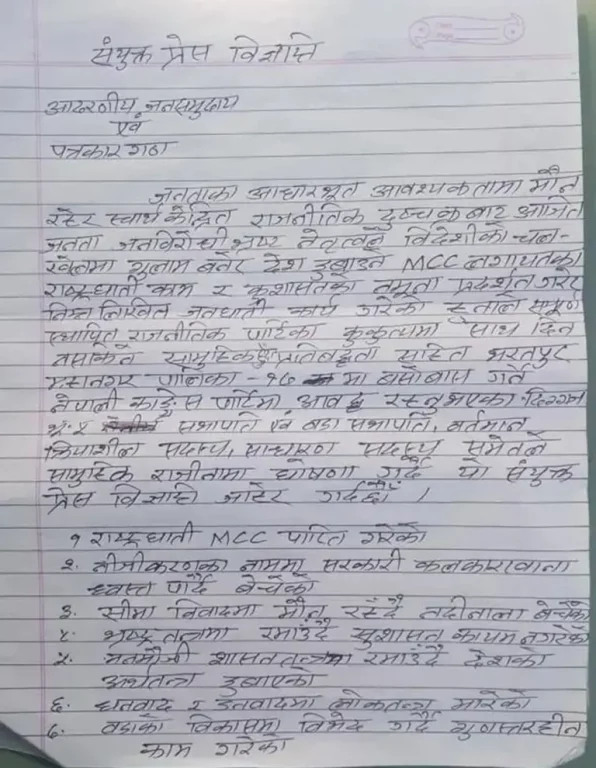 संयुक्त प्रेस विज्ञप्ति
आदरणीय जनसमुदाय
एवं
पत्रकार गण
जनताका आधारभूत आवश्यकतामा मौन
रहेर स्वार्थ केन्द्रित राजनीतिक दुष्चक्रबाट आजित
जनता जनविरोधी भ्रष्ट नेतृत्वले विदेशीको चल-
खेलमा गुलाम बनेर देश डुबाउने MCC लगायतका
राष्ट्रघाती काम र कुशासनको नमुना प्रदर्शन गरेर
निम्न लिखित जनघाती कार्य गरेको हुनाले सम्पूर्ण
स्थापित राजनीतिक पार्टिका कुकृत्यमा साथ दिन
नसकिने सामुहिक प्रतिवद्धता सहित भरतपुर
महानगर पालिका - १७ मा बसोबास गर्ने
नेपाली काङ्ग्रेस पार्टिमा आवद्ध
सभापति एवं वडा सभापति, वर्तमान
क्रियाशील सदस्य, साधारण सदस्य समेतले
सामुहिक राजीनामा घोषणा गर्दै यो संयुक्त
प्रेस विज्ञप्ति जाहेर गर्दछौं ।
१ राष्ट्रघाती MCC पारित गरेको
२. नीजीकरणका नाममा सरकारी कलकारखाना
ध्वस्त पार्दै बेचेको
३. सीमा विवादमा मौन रहँदै नदीनाला बेचेको
४. भ्रष्ट तन्त्रमा रमाउँदै सुशासन कायम नगरेको
५. मनमौजी शासनतन्त्रमा रमाउँदै देशको
अर्थतन्त्र डुबाएको
६. धनवाद र डनवादमा लोकतन्त्र मारेको
७. वडाको विकासमा विभेद गर्दै गुणस्तरहीन
काम गरेको